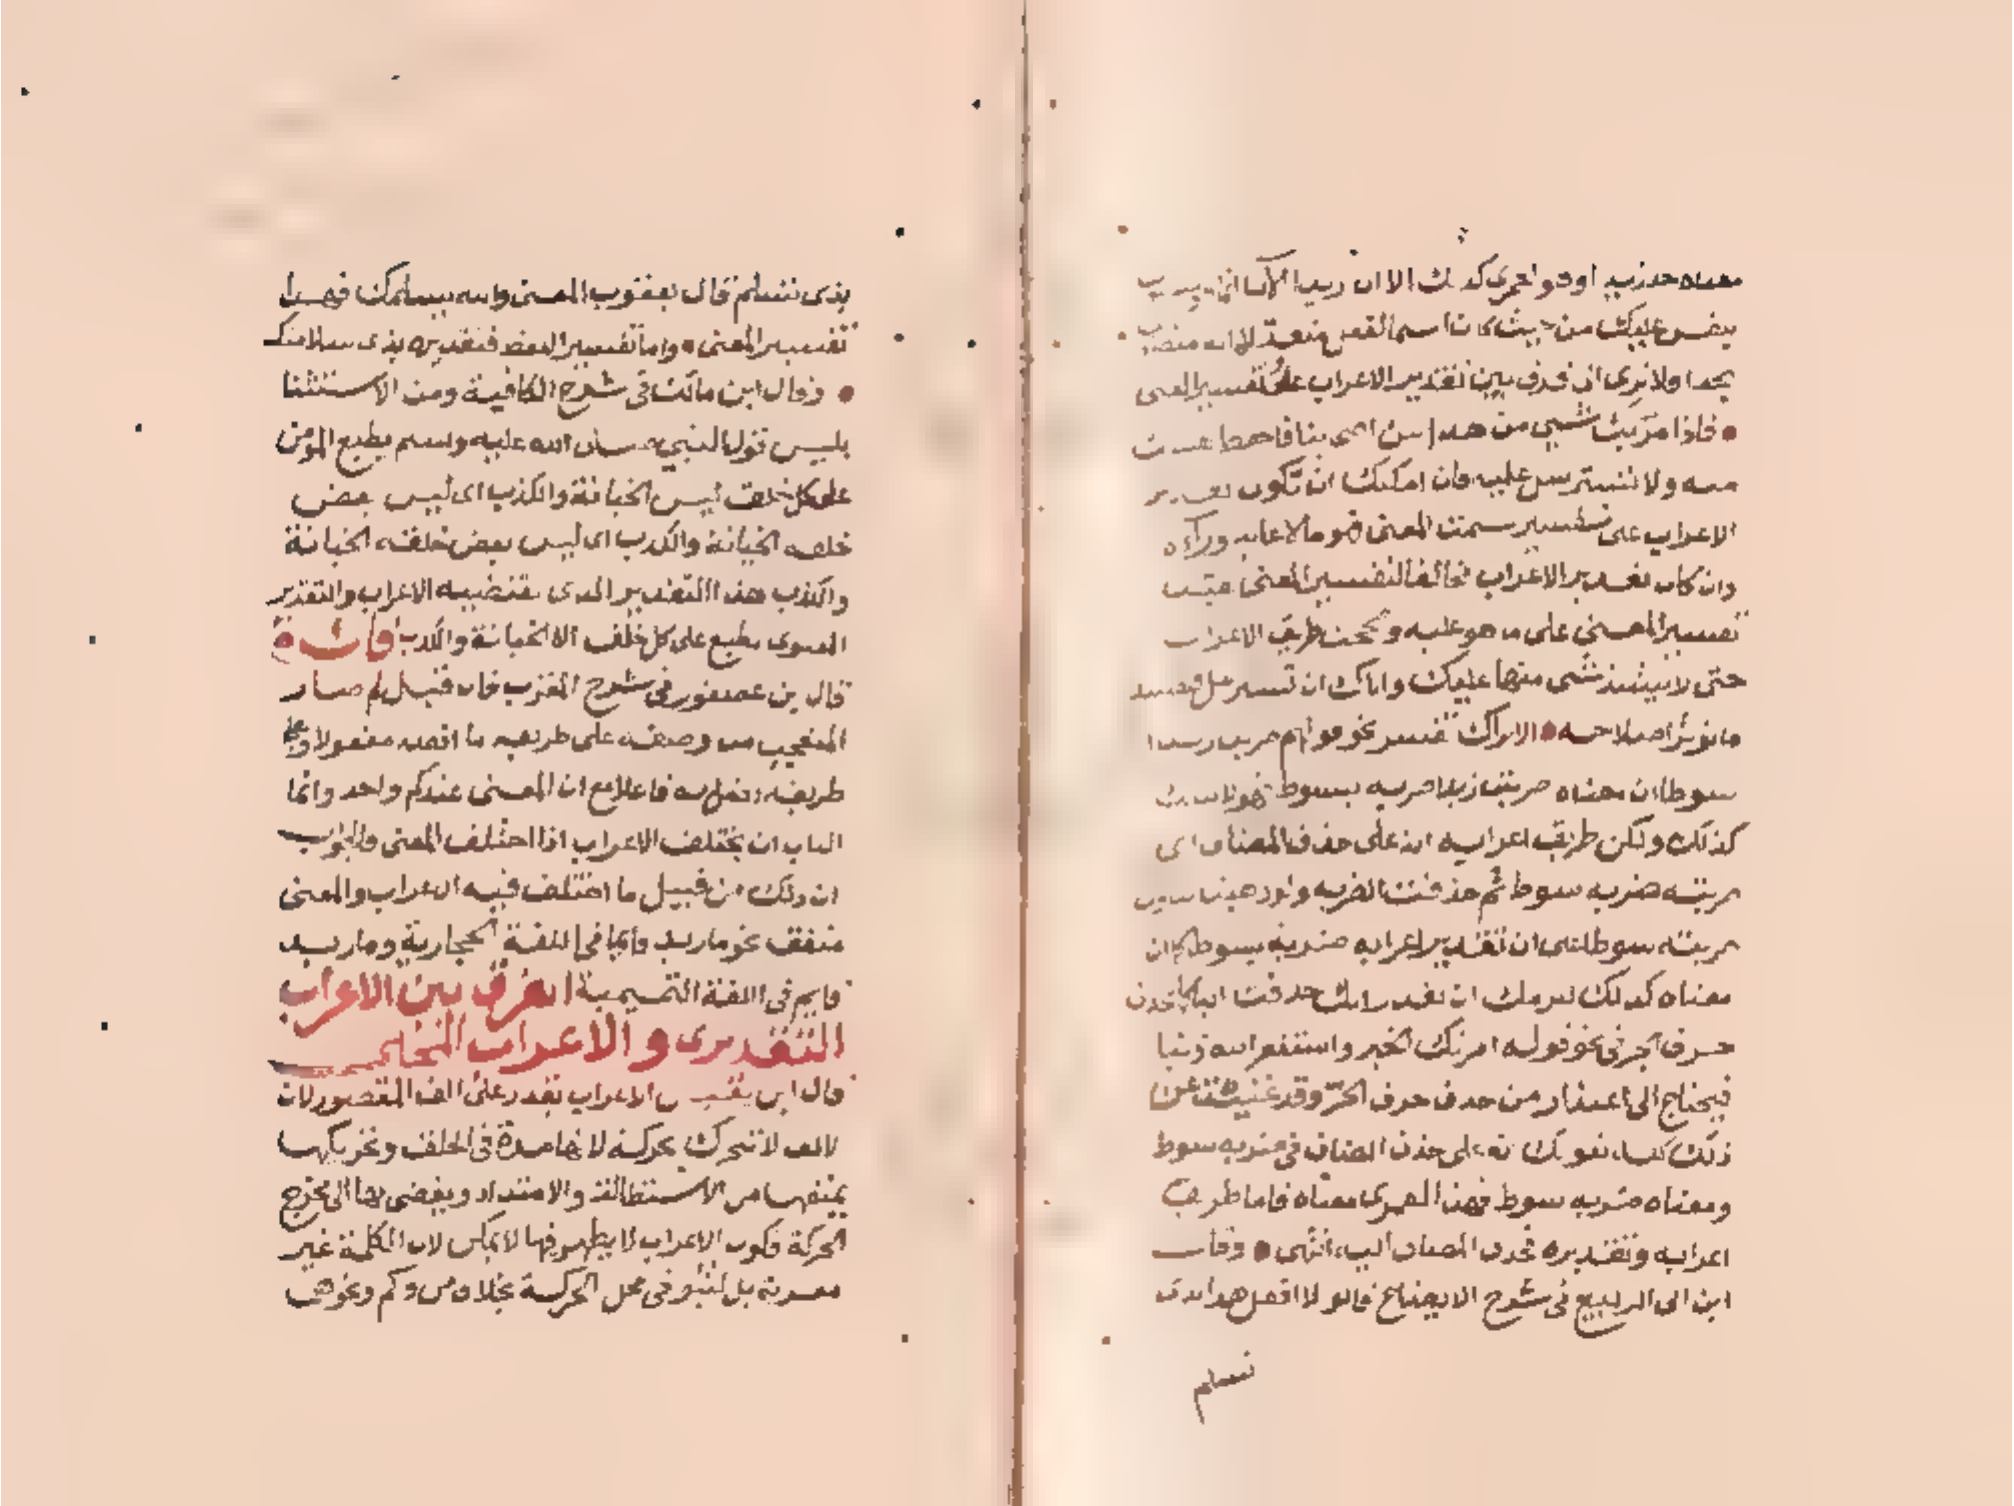 معناه خذ زيد او هو احرى كذلك الا ان زيدا
يفسر عليك من حيث كان اسما لفعل متعد لا انه منصوب
بحذا ولا ترى ان فرق بين تقدير الاعراب على تفسير المعنى
فاذا مر بك شيء من هذا عن اصحابنا فاحفظ نفسك
منه ولا تسترسل عليه فان امكنك ان تكون تقدير
الاعراب على تفسير سمت المعنى فهو ما لا غاية وراءه
وان كان تقدير الاعراب مخالفا لتفسير المعنى تقبلت
تفسير المعنى على ما هو عليه وصححت طريق الاعراب
حتى لا يشذ شيء منها عليك واياك ان تسترسل فتفسد
ما تؤثر اصلاحه الا تراك تفسر نحو قولهم ضربت زيدا
سوطا ان معناه ضربت زيدا ضربة بسوط فهو لا شك
كذلك ولكن طريق اعرابه انه على حذف المضاف اي
ضربته ضربة سوط ثم حذفت الضربة ولو ذهبت
ضربته سوطا على ان تقدير اعرابه ضربة بسوط كما ان
معناه كذلك للزمك ان تقدر انك حذفت الباء كما تحذف
حرف الجر في نحو قوله امرتك الخير واستغفر الله ذنبا
فيحتاج الى اعتذار من حذف حرف الجر وقد غنيت عن
ذلك كله بقولك انه على حذف المضاف في ضربة سوط
ومعناه ضربة بسوط فهذا لعمري معناه فاما طريق
اعرابه وتقديره فحذف المضاف اليه انتهى وقال
ابن ابي الربيع في شرح الايضاح قالوا لا افعل هذا بذي
تسلم
بذي تسلم قال يعقوب المعنى والله يسلمك فهذا
تفسير المعنى واما تفسير اللفظ فتقديره بذي سلامتك
وقال ابن مالك في شرح الكافية ومن الاستثنا
بليس قول النبي صلى الله عليه وسلم يطبع المؤمن
على كل خلق ليس الخيانة والكذب اي ليس بعض
خلقه الخيانة والكذب اي ليس بعض خلقه الخيانة
والكذب هذا التقدير الذي يقتضيه الاعراب والتقدير
المعنوي يطبع على كل خلق الا الخيانة والكذب فائدة
قال ابن عصفور في شرح المقرب فان قيل لم صار
المتعجب من وصفه على طريقة ما افعله مفعولا وعلى
طريقة افعل به فاعلا مع ان المعنى عندكم واحد وانما
الباب ان يختلف الاعراب اذا اختلف المعنى والجواب
ان ذلك من قبيل ما اختلف فيه الاعراب والمعنى
متفق نحو ما زيد قائما في اللغة الحجازية وما زيد
قايم في اللغة التميمية الفرق بين الاعراب
التقديري والاعراب المحلي
قال ابن يعيش الاعراب يقدر على الف المقصور لان
الالف لا تتحرك بحركة لانها مدة في الحلق وتحريكها
يمنعها من الاستطالة والامتداد ويفضي بها الى مخرج
الحركة فكون الاعراب لا يظهر فيها لا يكن لان الكلمة غير
معربة بل لنبو في محل الحركة بخلاف من وكم ونحوهما